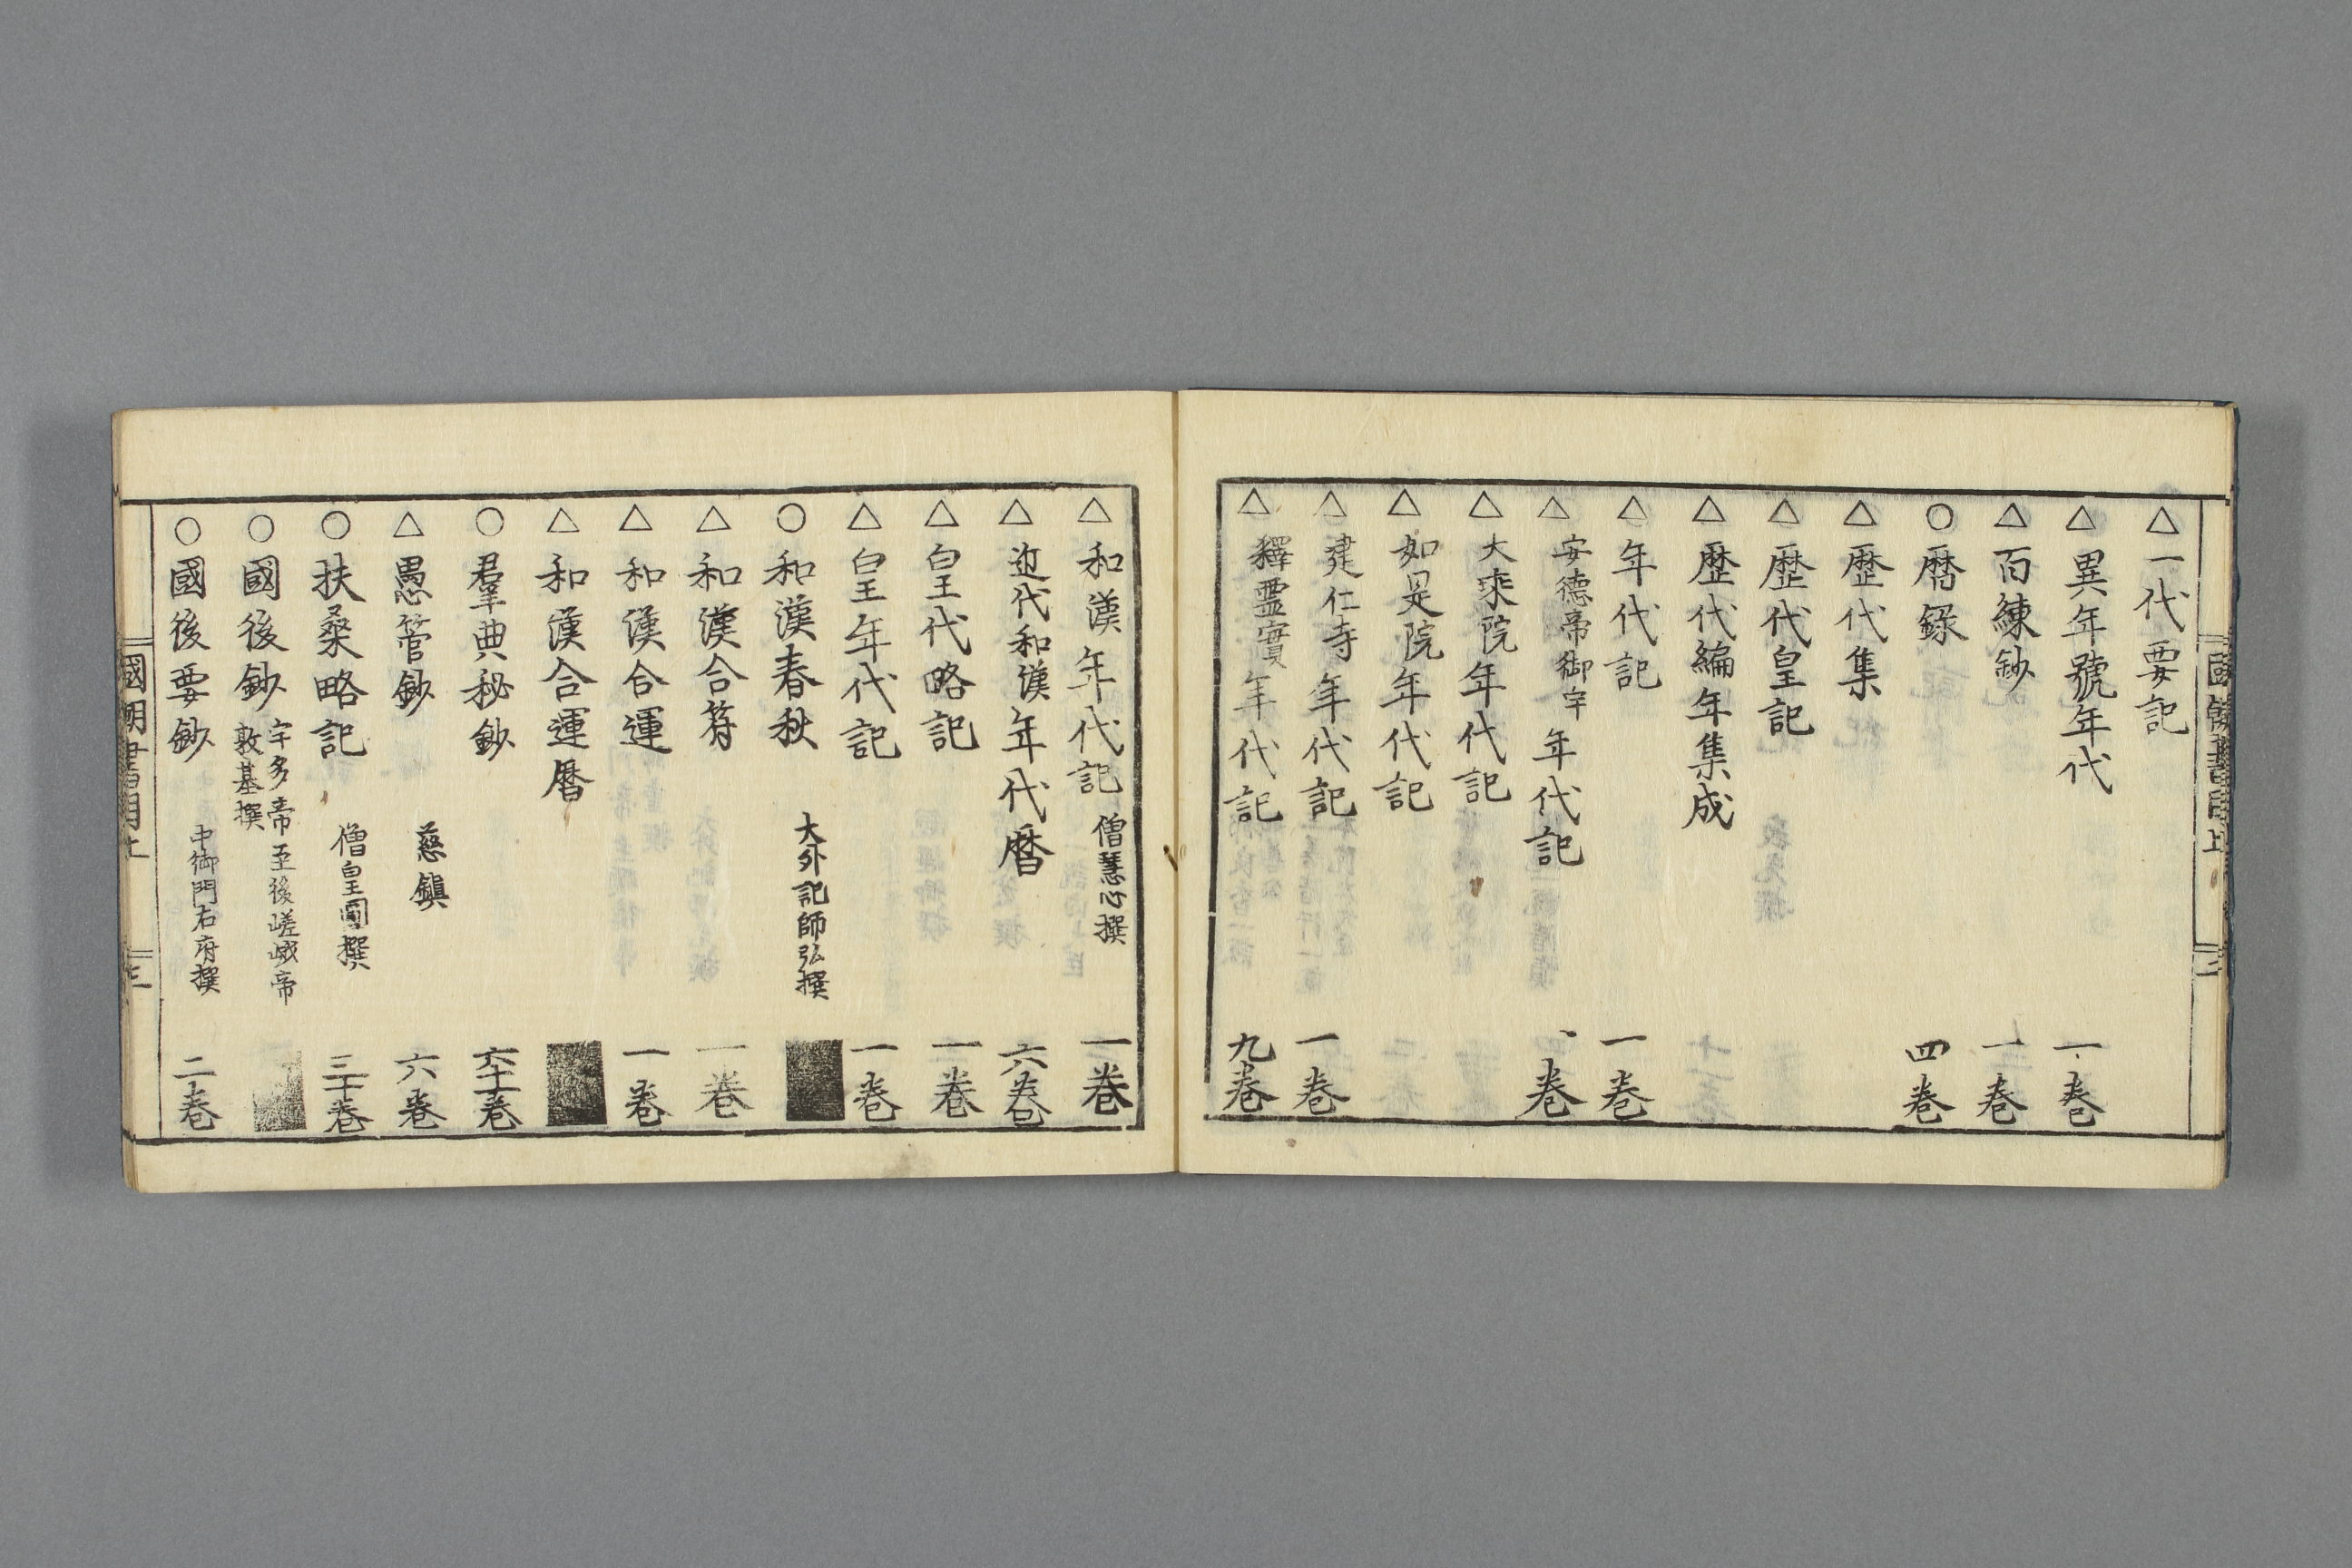 △一代要記
△異年號年代 一卷
△百練鈔 一卷
○暦録 四卷
△歷代集
△歷代皇記
△歷代編年集成
△年代記 一卷
△安德帝御宇年代記 一卷
△大來院年代記
△如是院年代記
△建仁寺年代記 一卷
△釋靈實年代記 九卷
△和漢年代記 僧慧心撰 一卷
△近代和漢年代暦 六卷
△皇代略記 一卷
△皇年代記 一卷
○和漢春秋 大外記師弘撰
△和漢合符 一卷
△和漢合運 一卷
△和漢合運暦
○羣典秘鈔 六十二卷
△愚管鈔 慈鎮 六卷
○扶桑略記 僧皇圓撰 三十卷
○國後鈔 宇多帝至後嵯峨帝
敦基撰
○國後要鈔 中御門右府撰 二卷